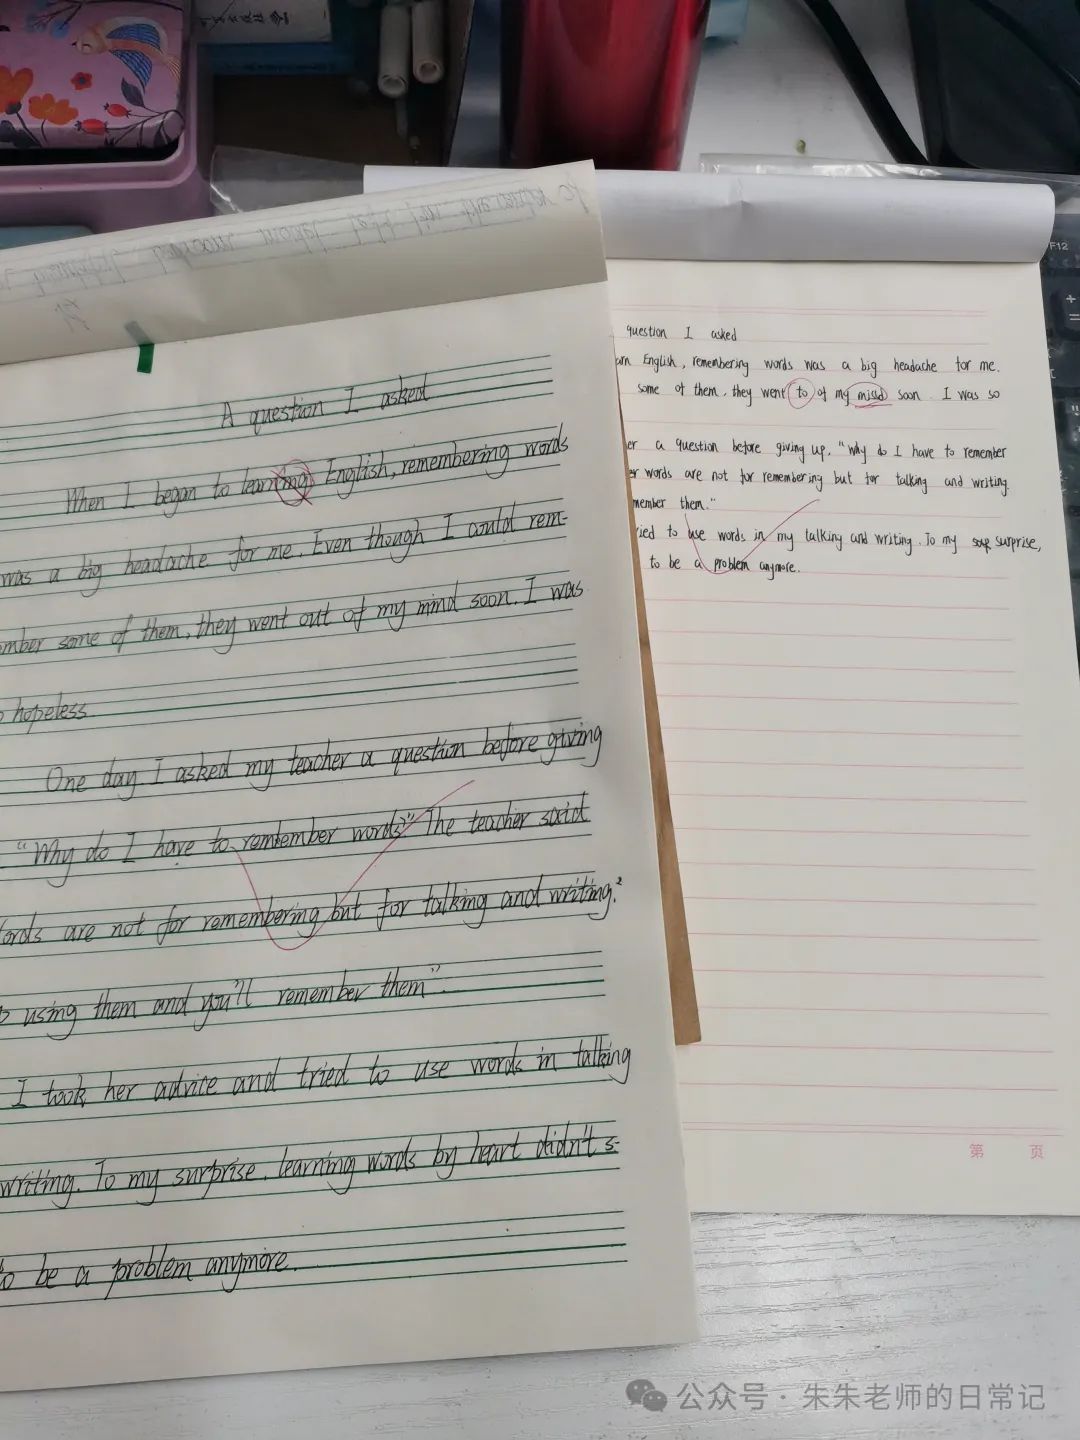 A question I asked
When I began to learning English, remembering words
was a big headache for me. Even though I could rem-
ember some of them, they went out of my mind soon. I was
hopeless.
One day I asked my teacher a question before giving
"Why do I have to remember words?" The teacher said
words are not for remembering but for talking and writing.
using them and you'll remember them".
I took her advice and tried to use words in talking
writing. To my surprise, learning words by heart didn't s-
to be a problem anymore.
question I asked
arn English, remembering words was a big headache for me.
some of them, they went to of my misld soon. I was so
er a question before giving up. "Why do I have to remember
er words are not for remembering but for talking and writing.
member them."
ried to use words in my talking and writing. To my surprise,
to be a problem anymore.
F12
第 页
公众号·朱朱老师的日常记